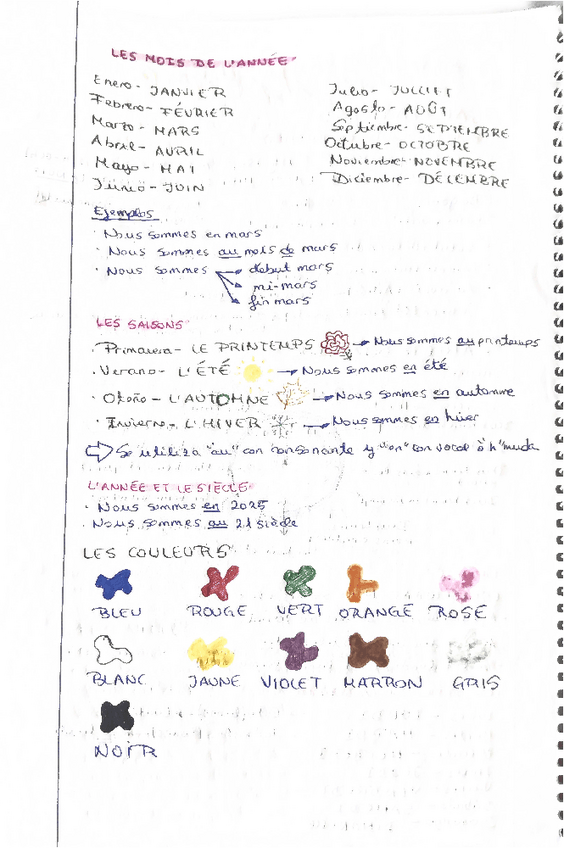 LES MOIS DE L'ANNÉE
Enero- JANVIER
Febrero- FÉVRIER
Marzo- MARS
Abril- AVRIL
Mayo- MAI
Junio- JUIN
Julio- JUILLET
Agosto- AOÛT
Septiembre- SEPTEMBRE
Octubre- OCTOBRE
Noviembre- NOVEMBRE
Diciembre- DÉCEMBRE
Ejemplos
· Nous sommes en mars
· Nous sommes au mois de mars
· Nous sommes → début mars
→ mi-mars
→ fin mars
LES SAISONS
· Primavera- LE PRINTEMPS → Nous sommes au printemps
· Verano- L'ÉTÉ → Nous sommes en été
· Otoño- L'AUTOMNE → Nous sommes en automne
· Invierno- L'HIVER → Nous sommes en hiver
⇒ Se utiliza "au" con consonante y "en" con vocal o h muda
L'ANNÉE ET LE SIÈCLE
· Nous sommes en 2025
· Nous sommes au 21 siècle
LES COULEURS
BLEU ROUGE VERT ORANGE ROSE
BLANC JAUNE VIOLET MARRON GRIS
NOIR